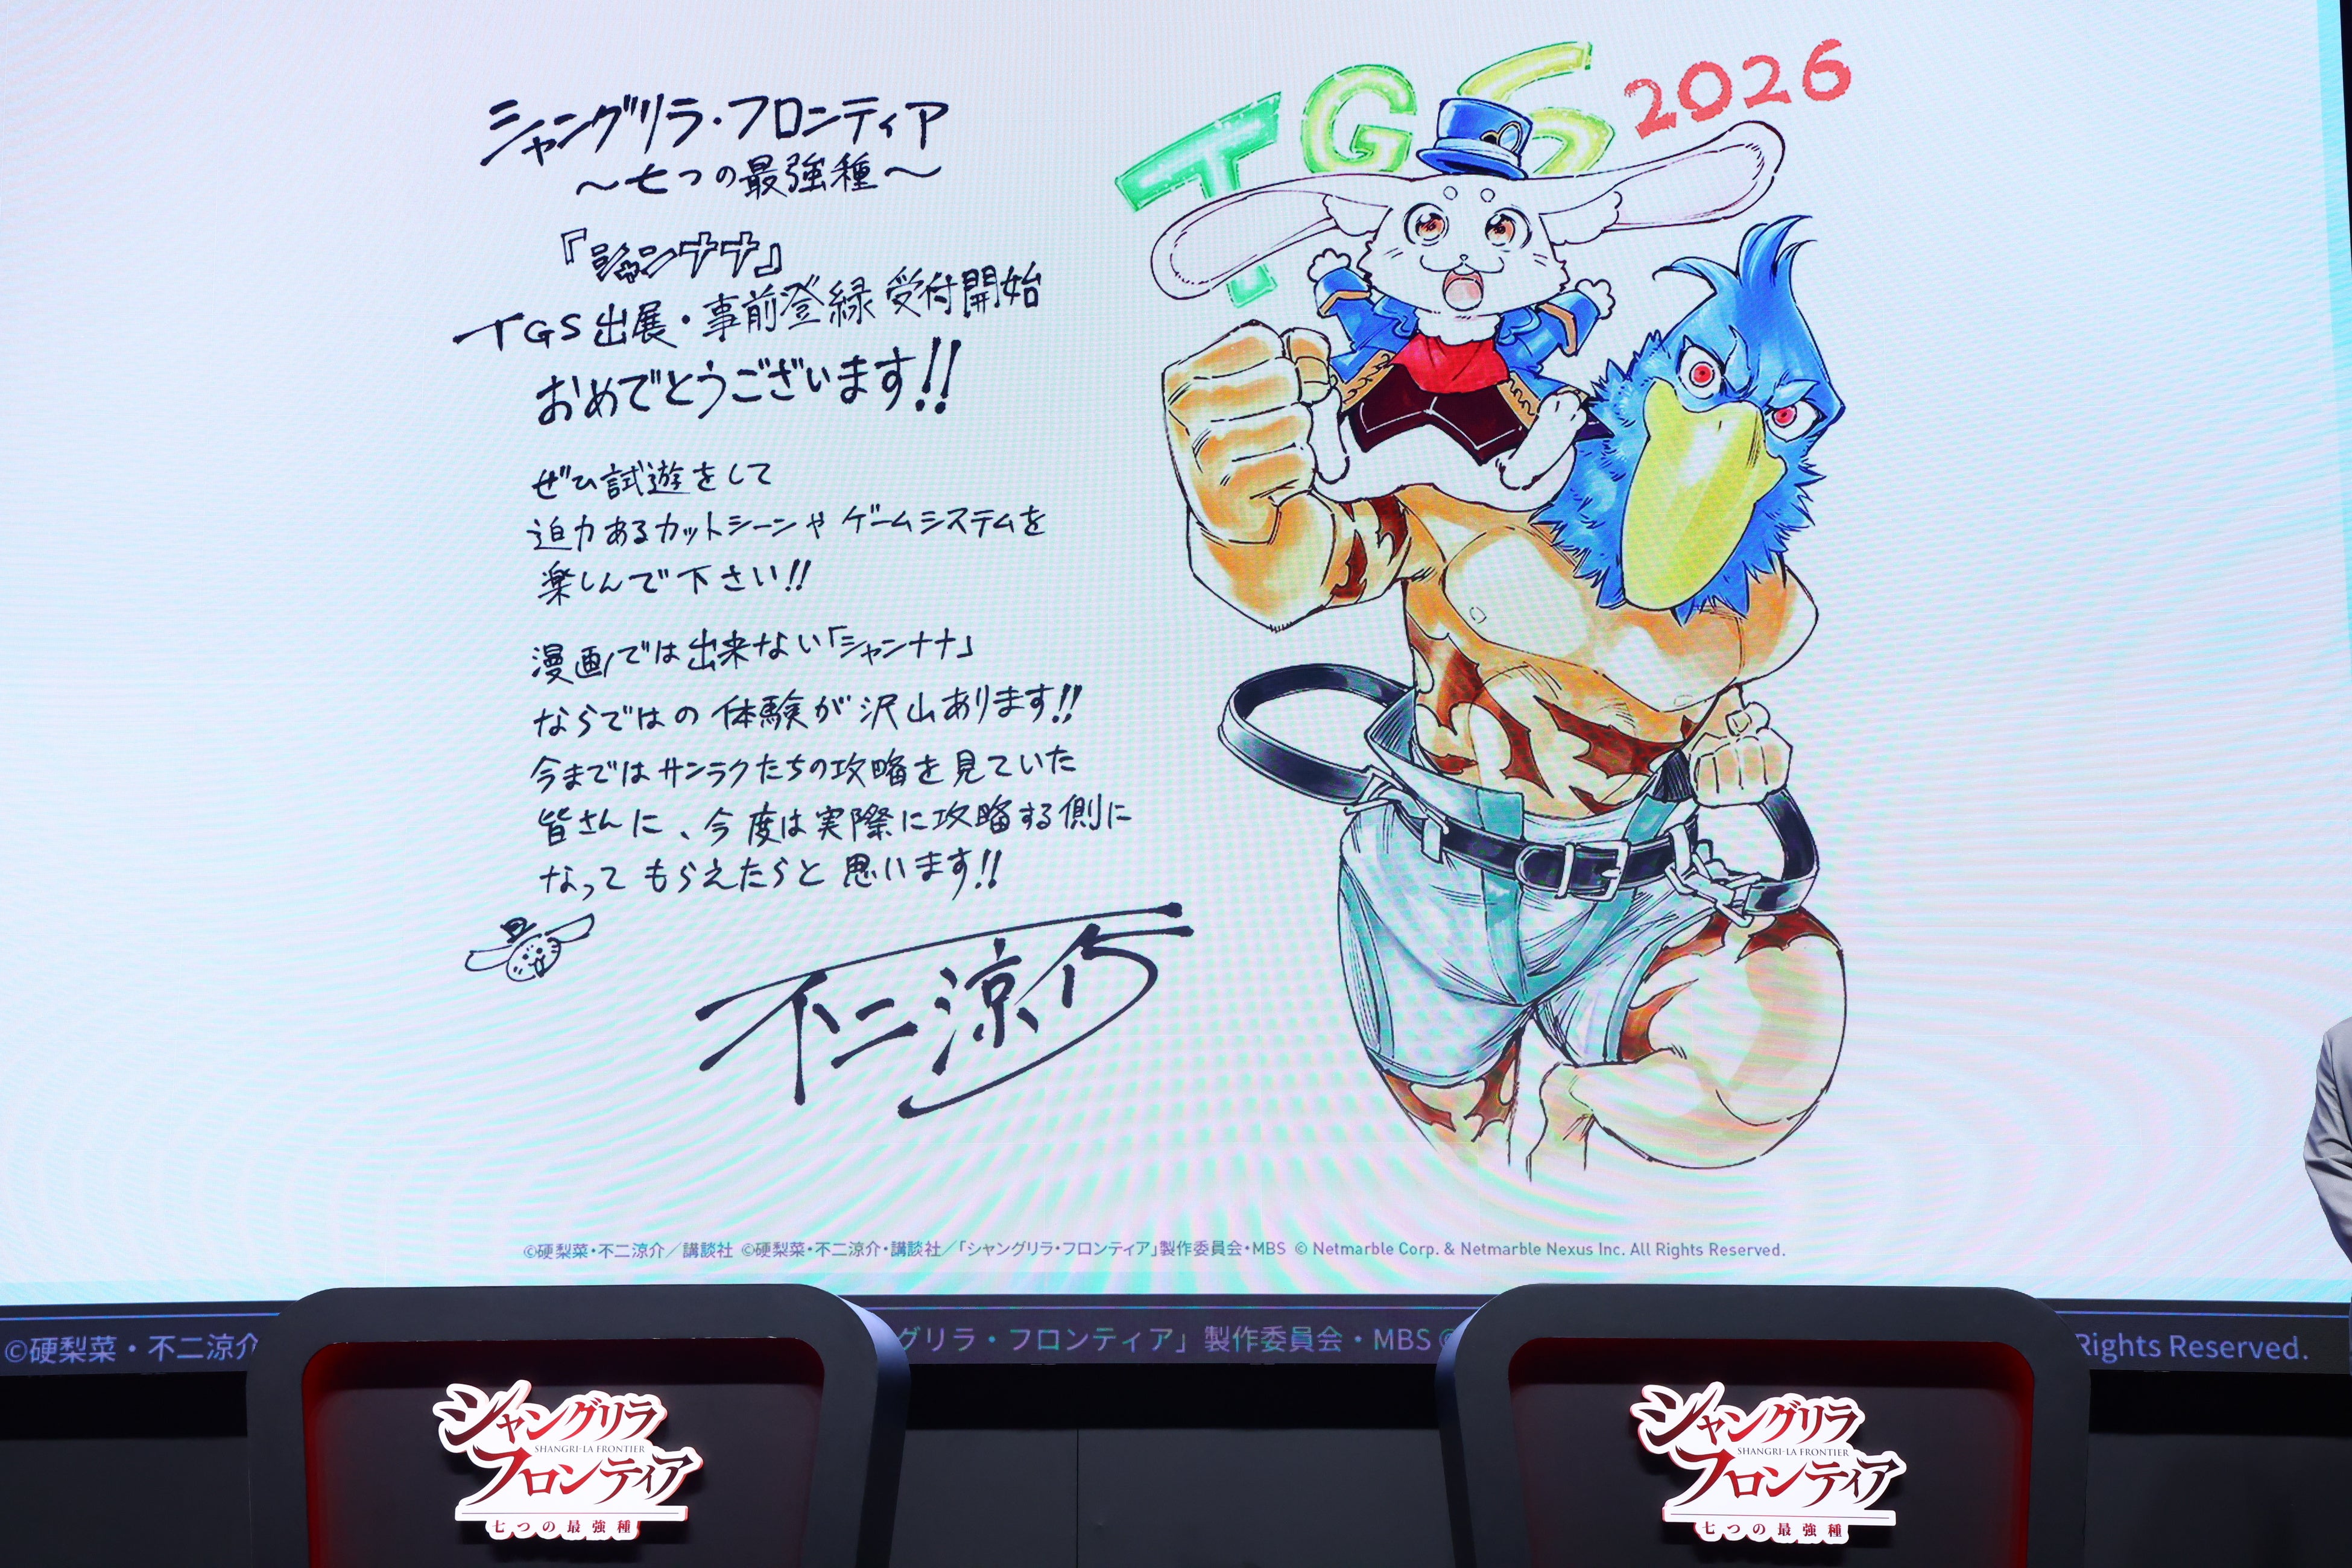 TGS 2026
シャングリラ・フロンティア
〜七つの最強種〜
『シャンナナ』
TGS出展・事前登録 受付開始
おめでとうございます!!
ぜひ試遊をして
迫力あるカットシーンや ゲームシステムを
楽しんで下さい!!
漫画では出来ない「シャンナナ」
ならではの 体験が 沢山あります!!
今まではサンラクたちの攻略を見ていた
皆さんに、今度は実際に攻略する側に
なって もらえたらと 思います!!
不二涼介
©硬梨菜・不二涼介／講談社 ©硬梨菜・不二涼介・講談社／「シャングリラ・フロンティア」製作委員会・MBS © Netmarble Corp. & Netmarble Nexus Inc. All Rights Reserved.
©硬梨菜・不二涼介
グリラ・フロンティア」製作委員会・MBS ©
Rights Reserved.
シャングリラ
SHANGRI-LA FRONTIER
フロンティア
七つの最強種
シャングリラ
SHANGRI-LA FRONTIER
フロンティア
七つの最強種